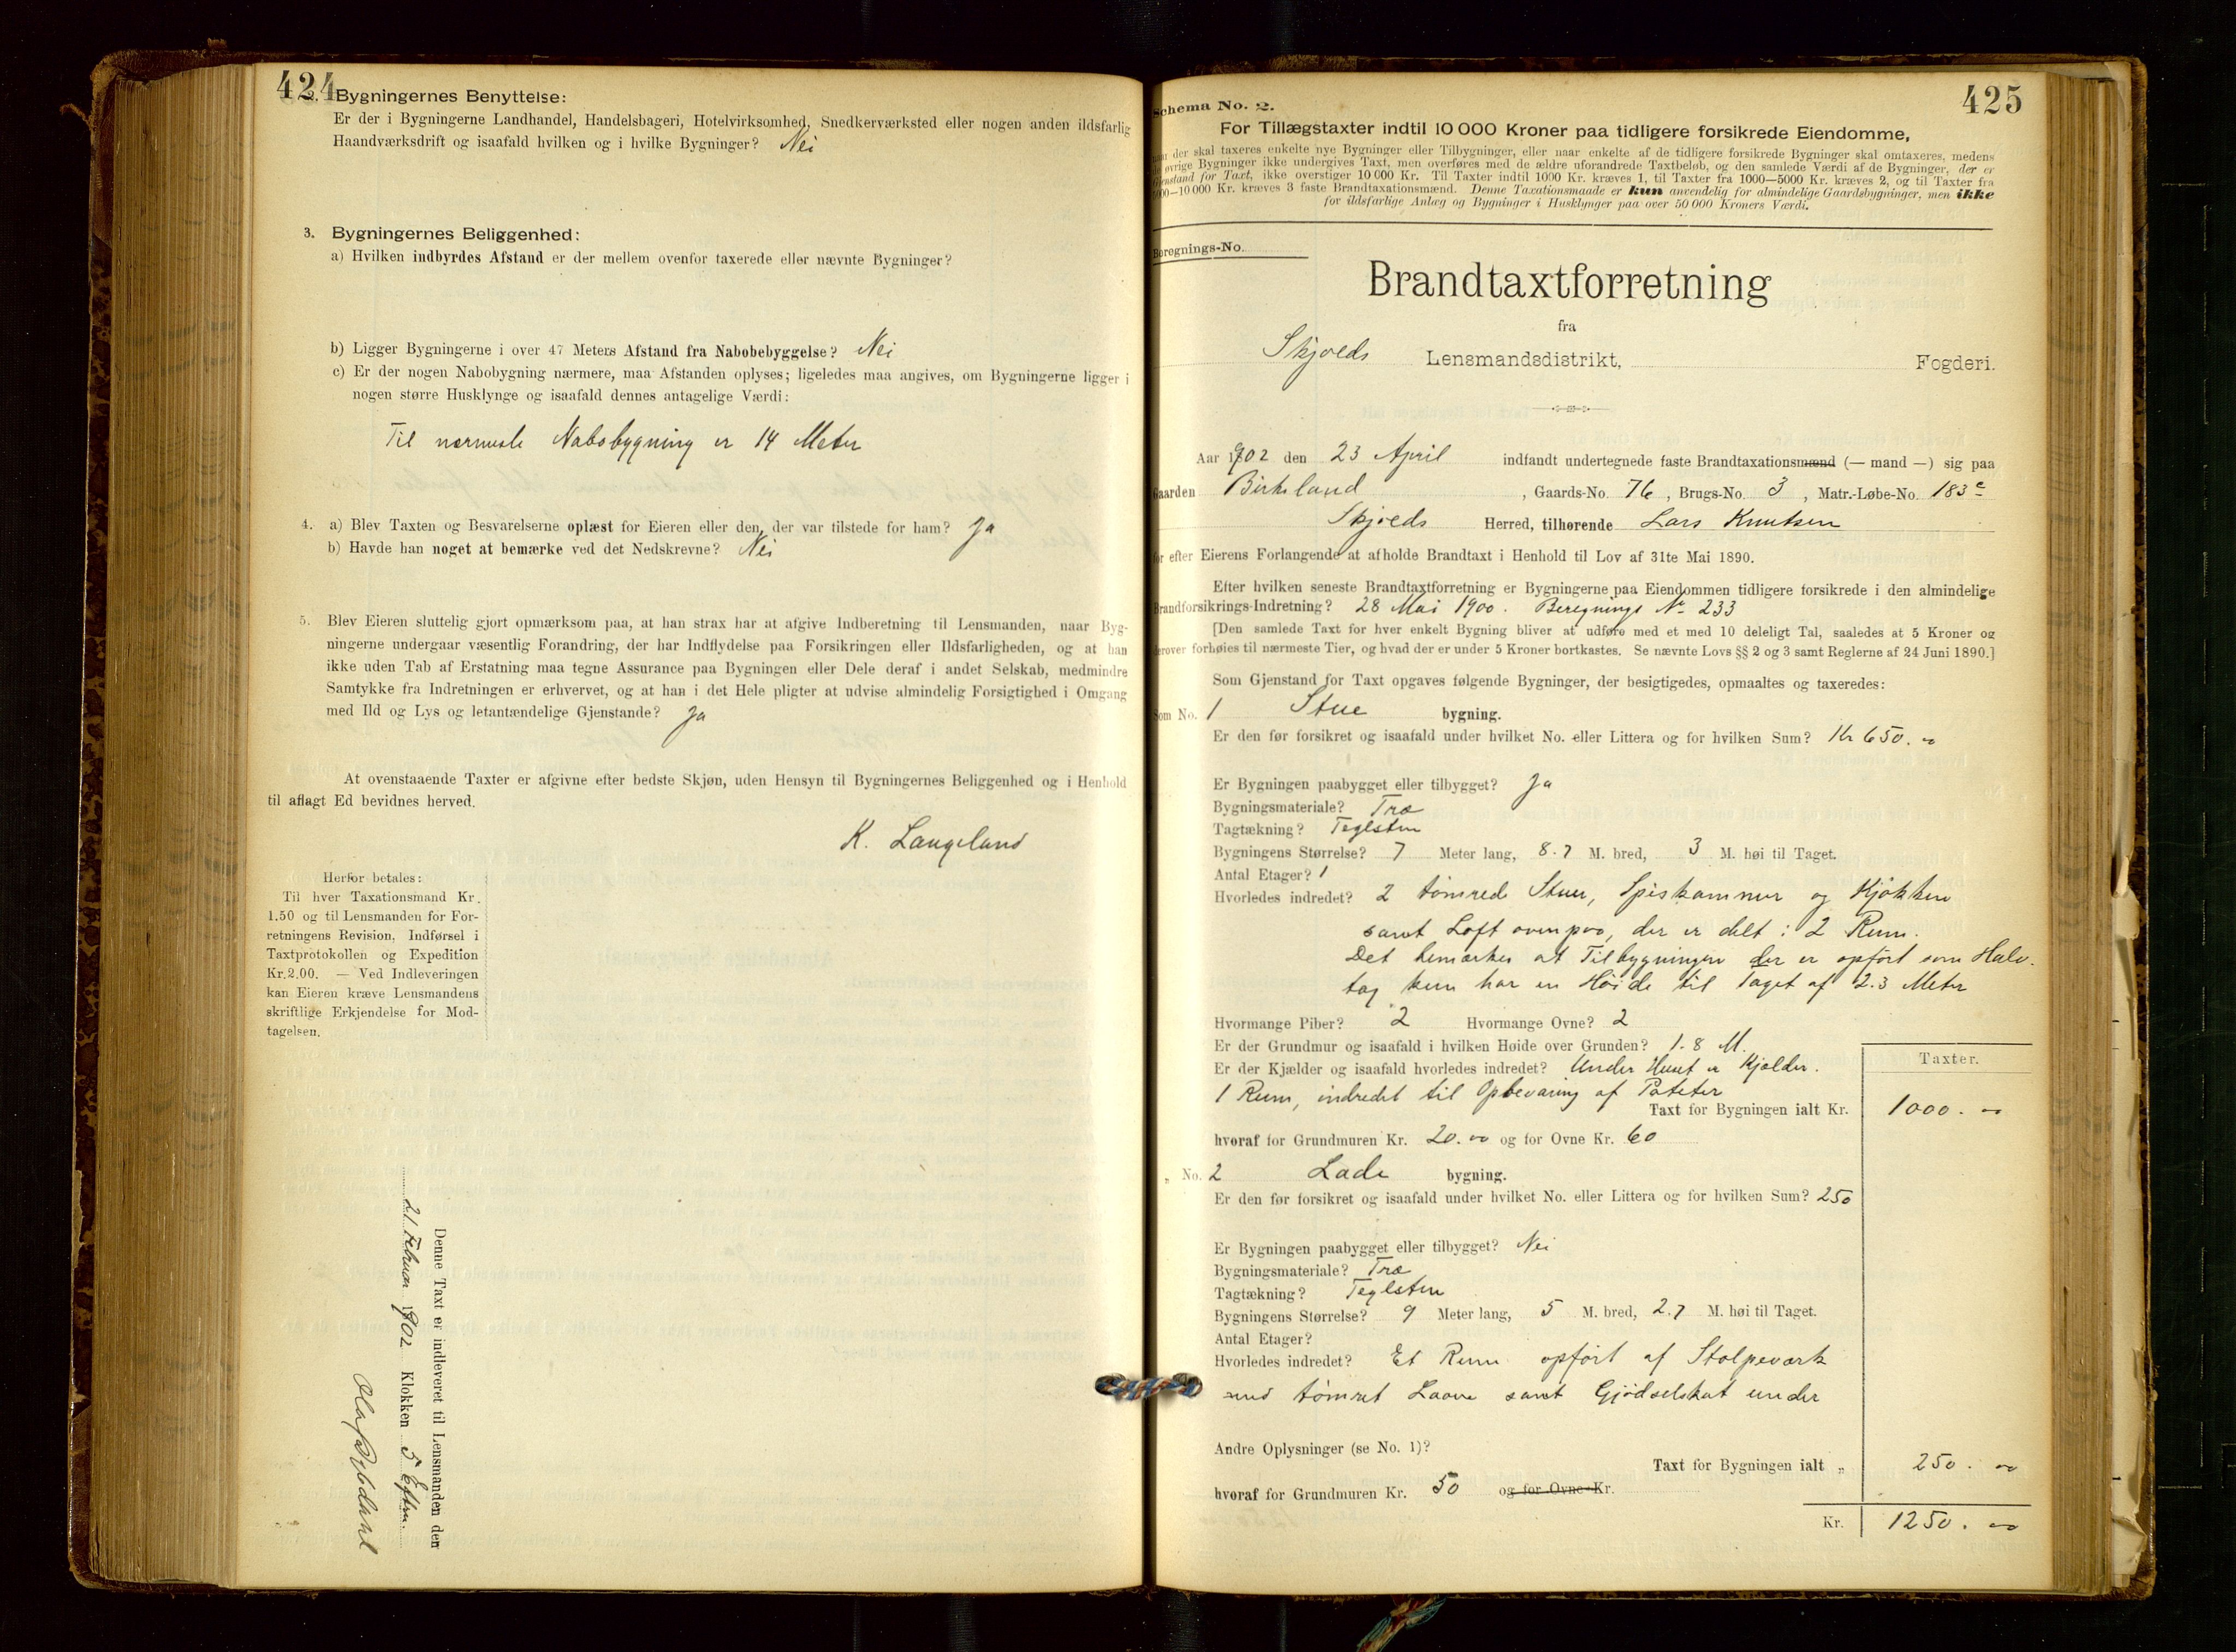 424
2. Bygningernes Benyttelse:
Er der i Bygningerne Landhandel, Handelsbageri, Hotelvirksomhed, Snedkerværksted eller nogen anden ildsfarlig
Haandværksdrift og isaafald hvilken og i hvilke Bygninger? Nei
3. Bygningernes Beliggenhed:
a) Hvilken indbyrdes Afstand er der mellem ovenfor taxerede eller nævnte Bygninger?
b) Ligger Bygningerne i over 47 Meters Afstand fra Nabobebyggelse? Nei
c) Er der nogen Nabobygning nærmere, maa Afstanden oplyses; ligeledes maa angives, om Bygningerne ligger i
nogen større Husklynge og isaafald dennes antagelige Værdi:
Til nærmeste Nabobygning er 14 Meter
4. a) Blev Taxten og Besvarelserne oplæst for Eieren eller den, der var tilstede for ham? Ja
b) Havde han noget at bemærke ved det Nedskrevne? Nei
5. Blev Eieren sluttelig gjort opmærksom paa, at han strax har at afgive Indberetning til Lensmanden, naar Byg-
ningerne undergaar væsentlig Forandring, der har Indflydelse paa Forsikringen eller Ildsfarligheden, og at han
ikke uden Tab af Erstatning maa tegne Assurance paa Bygningen eller Dele deraf i andet Selskab, medmindre
Samtykke fra Indretningen er erhvervet, og at han i det Hele pligter at udvise almindelig Forsigtighed i Omgang
med Ild og Lys og letantændelige Gjenstande? Ja
At ovenstaaende Taxter er afgivne efter bedste Skjøn, uden Hensyn til Bygningernes Beliggenhed og i Henhold
til aflagt Ed bevidnes herved.
K. Langeland
Herfor betales:
Til hver Taxationsmand Kr.
1.50 og til Lensmanden for For-
retningens Revision, Indførsel i
Taxtprotokollen og Expedition
Kr. 2.00. — Ved Indleveringen
kan Eieren kræve Lensmandens
skriftlige Erkjendelse for Mod-
tagelsen.
Denne Taxt er indleveret til Lensmanden den
21 Februar 1902 Klokken 5 Eftm.
425
Schema No. 2.
For Tillægstaxter indtil 10 000 Kroner paa tidligere forsikrede Eiendomme,
naar der skal taxeres enkelte nye Bygninger eller Tilbygninger, eller naar enkelte af de tidligere forsikrede Bygninger skal omtaxeres, medens
de øvrige Bygninger ikke undergives Taxt, men overføres med de ældre uforandrede Taxtbeløb, og den samlede Værdi af de Bygninger, der er
Gjenstand for Taxt, ikke overstiger 10 000 Kr. Til Taxter indtil 1000 Kr. kræves 1, til Taxter fra 1000—5000 Kr. kræves 2, og til Taxter fra
5000—10 000 Kr. kræves 3 faste Brandtaxationsmænd. Denne Taxationsmaade er kun anvendelig for almindelige Gaardsbygninger, men ikke
for ildsfarlige Anlæg og Bygninger i Husklynger paa over 50 000 Kroners Værdi.
Beregnings-No.
Brandtaxtforretning
fra
Skjolds Lensmandsdistrikt, Fogderi.
Aar 1902 den 23 April indfandt undertegnede faste Brandtaxationsmænd (— mand —) sig paa
Gaarden Birkeland, Gaards-No. 76, Brugs-No. 3, Matr.-Løbe-No. 183 c
Skjolds Herred, tilhørende Lars Knutsen
for efter Eierens Forlangende at afholde Brandtaxt i Henhold til Lov af 31te Mai 1890.
Efter hvilken seneste Brandtaxtforretning er Bygningerne paa Eiendommen tidligere forsikrede i den almindelige
Brandforsikrings-Indretning? 28 Mai 1900. Beregnings No 233
[Den samlede Taxt for hver enkelt Bygning bliver at udføre med et med 10 deleligt Tal, saaledes at 5 Kroner og
derover forhøies til nærmeste Tier, og hvad der er under 5 Kroner bortkastes. Se nævnte Lovs §§ 2 og 3 samt Reglerne af 24 Juni 1890.]
Som Gjenstand for Taxt opgaves følgende Bygninger, der besigtigedes, opmaaltes og taxeredes:
Som No. 1 Stue bygning.
Er den før forsikret og isaafald under hvilket No. eller Littera og for hvilken Sum? Kr 650. oo
Er Bygningen paabygget eller tilbygget? Ja
Bygningsmateriale? Træ
Tagtækning? Teglsten
Bygningens Størrelse? 7 Meter lang, 8.7 M. bred, 3 M. høi til Taget.
Antal Etager? 1
Hvorledes indredet? 2 tømrede Stuer, Spiskammer og Kjøkken
samt Loft ovenpaa, der er delt i 2 Rum.
Det bemærkes at Tilbygningen der er opført som Halv-
tag kun har en Høide til Taget af 2.3 Meter
Hvormange Piber? 2 Hvormange Ovne? 2
Er der Grundmur og isaafald i hvilken Høide over Grunden? 1.8 M.
Er der Kjælder og isaafald hvorledes indredet? Under Huset er Kjælder.
1 Rum, indredet til Opbevaring af Poteter
Taxter.
Taxt for Bygningen ialt Kr. 1000. oo
hvoraf for Grundmuren Kr. 20. oo og for Ovne Kr. 60
„ No. 2 Lade bygning.
Er den før forsikret og isaafald under hvilket No. eller Littera og for hvilken Sum? 250
Er Bygningen paabygget eller tilbygget? Nei
Bygningsmateriale? Træ
Tagtækning? Teglsten
Bygningens Størrelse? 9 Meter lang, 5 M. bred, 2.7 M. høi til Taget.
Antal Etager?
Hvorledes indredet? Et Rum opført af Stolpeværk
med tømret Laave samt Gjødselskat under
Andre Oplysninger (se No. 1)?
Taxt for Bygningen ialt „ 250. oo
hvoraf for Grundmuren Kr. 50 og for Ovne Kr.
Kr. 1250. oo